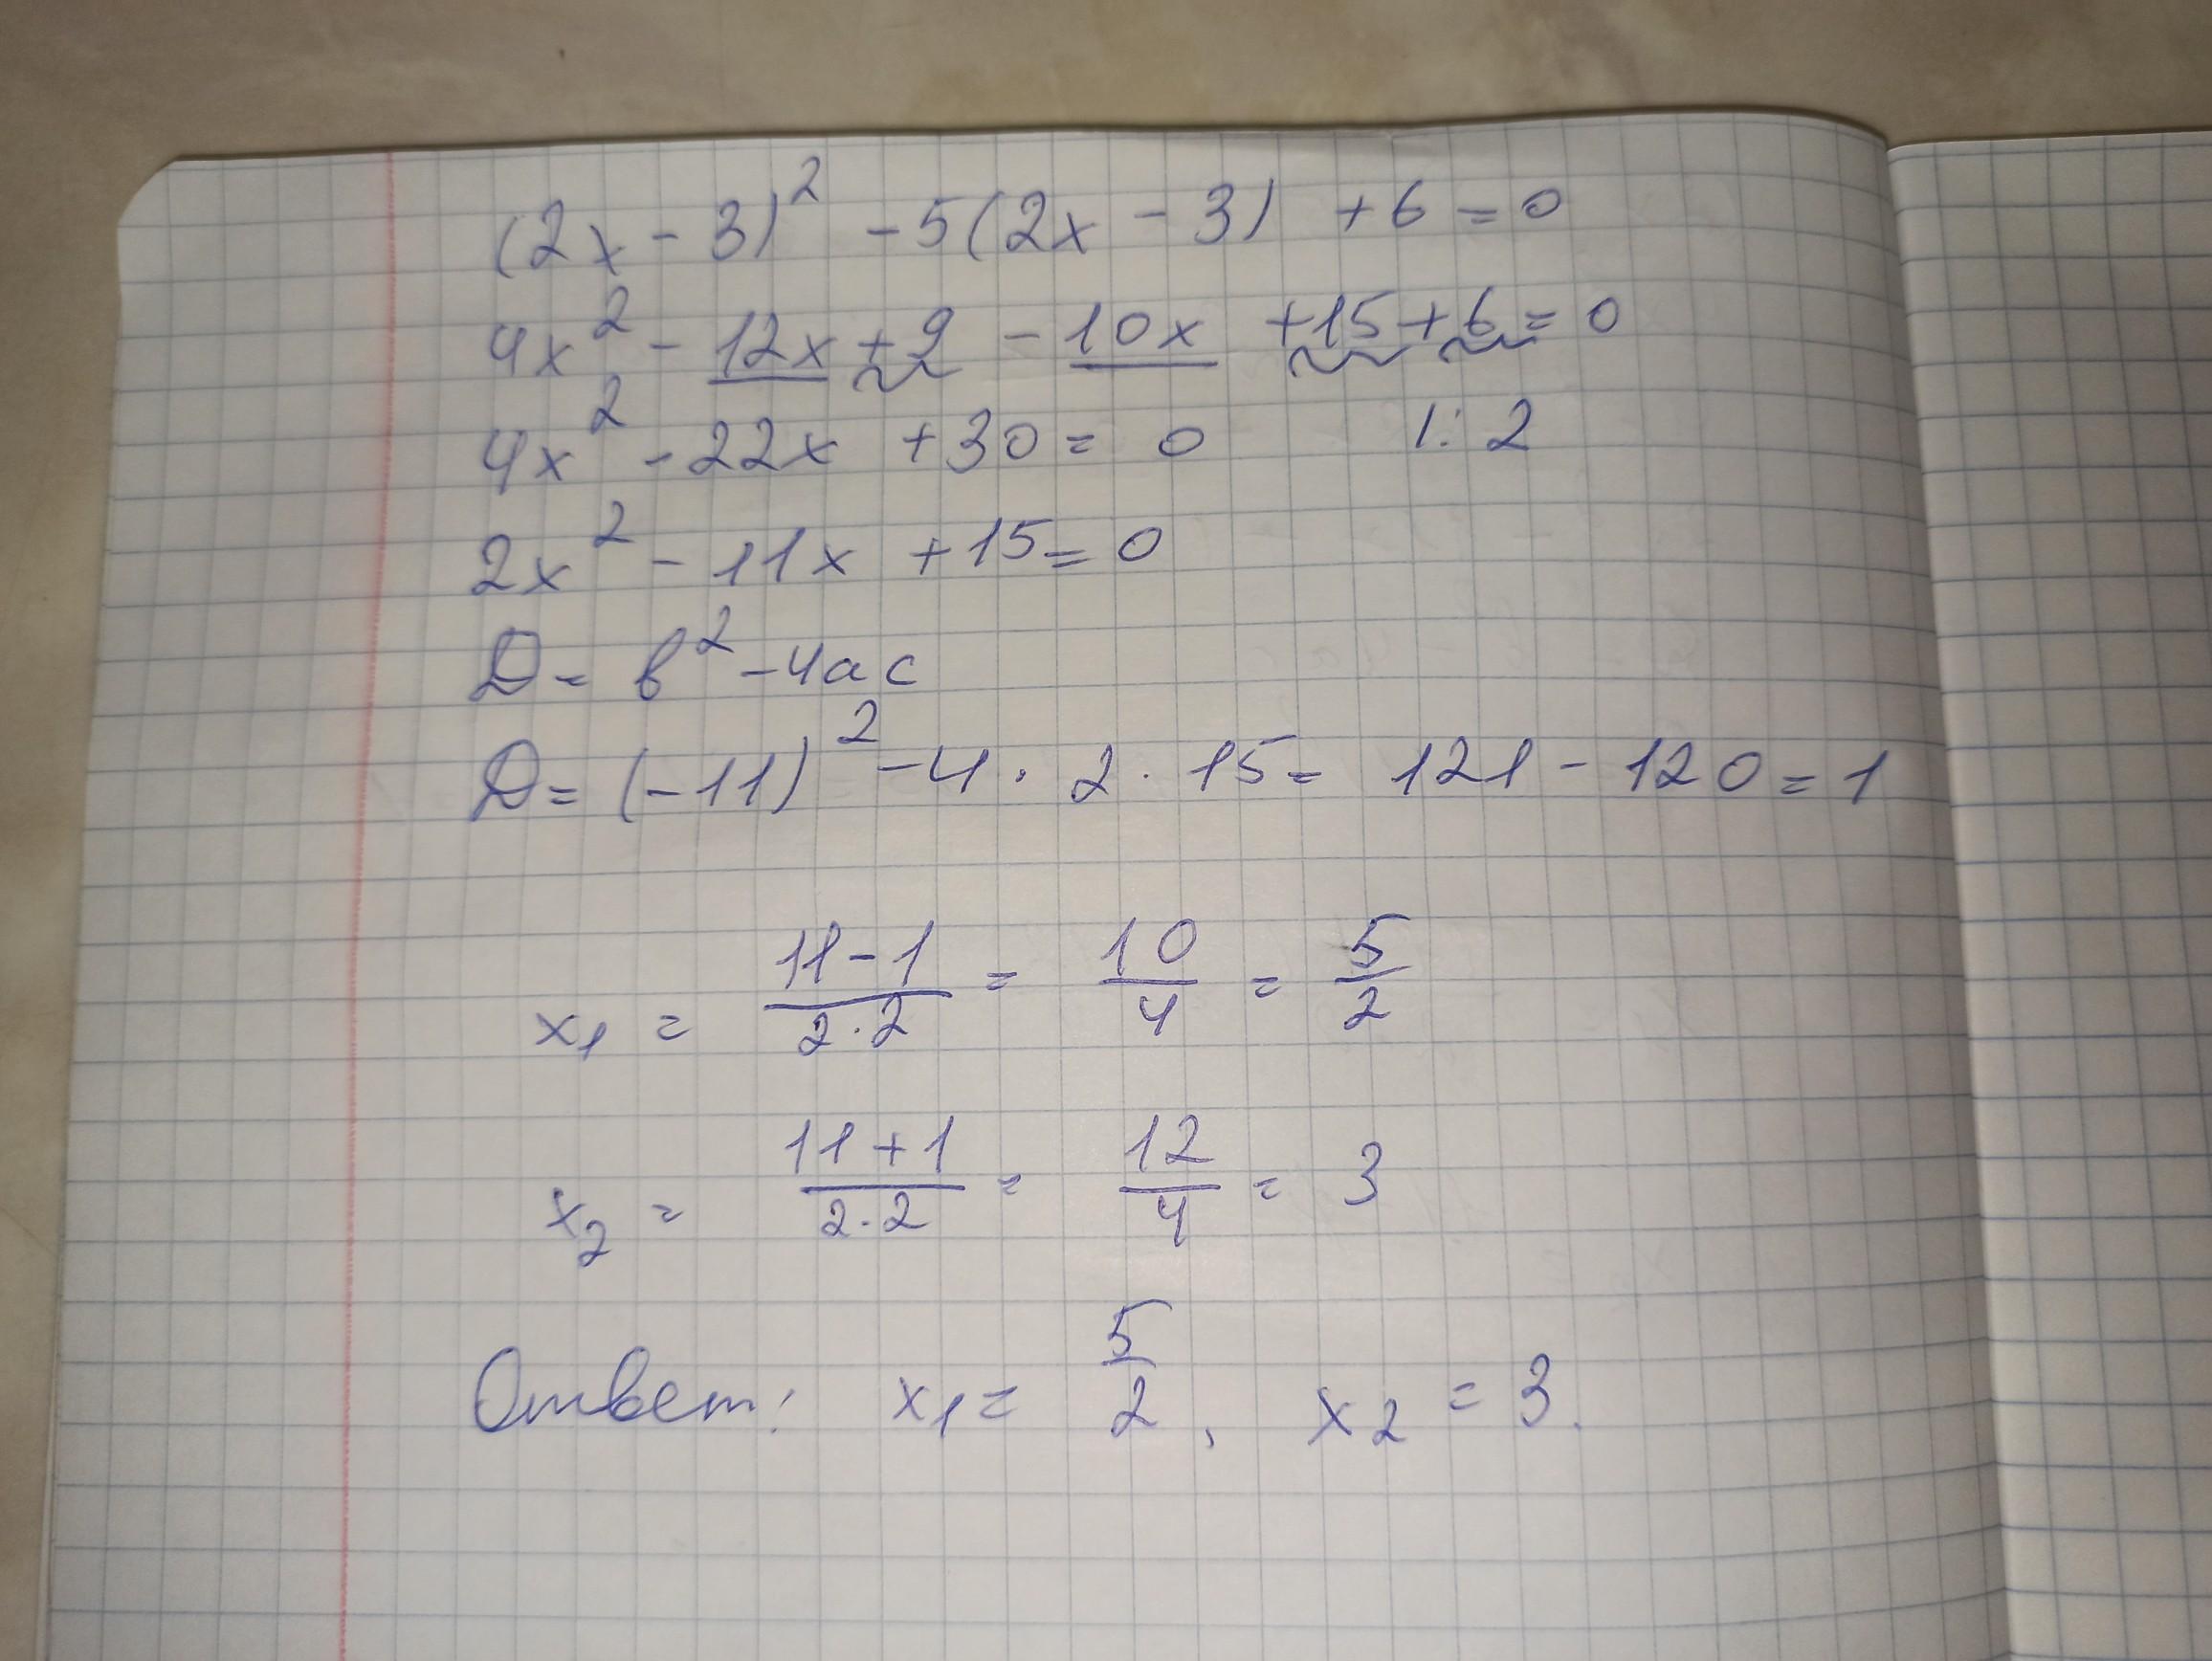 (2x - 3)² - 5(2x - 3) + 6 = 0
4x² - 12x + 9 - 10x + 15 + 6 = 0
4x² - 22x + 30 = 0 |: 2
2x² - 11x + 15 = 0
D = b² - 4ac
D = (-11)² - 4 · 2 · 15 = 121 - 120 = 1
x₁ = (11 - 1)/(2·2) = 10/4 = 5/2
x₂ = (11 + 1)/(2·2) = 12/4 = 3
Ответ: x₁ = 5/2, x₂ = 3.